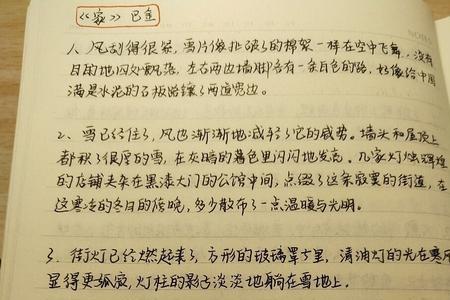 《家》 巴金
1、风刮得很紧,雪片像扯破了的棉絮一样在空中飞舞,没有
目的地四处飘落。左右两边墙脚各有一条白色的路,好像给中间
满是水泥的石板路镶了两道宽边。
2、雪已经住了,风也渐渐地减轻了它的威势。墙头和屋顶上
都积了很厚的雪,在灰暗的暮色里闪闪地发亮。几家灯烛辉煌
的店铺夹杂在黑漆大门的公馆中间,点缀了这条寂寞的街道,在
这寒冷的冬日的傍晚,多少散布了一点温暖与光明。
3、街灯已经燃起来了,方形的玻璃罩子里,清油灯的光在寒风
显得更孤寂,灯柱的影子淡淡地躺在雪地上.